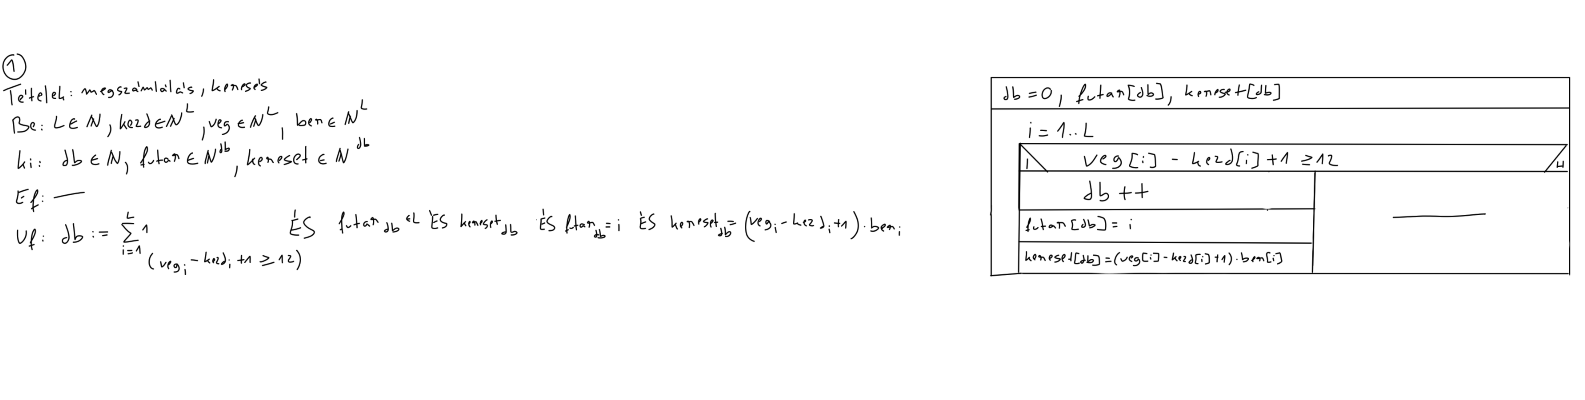 1
Tételek: megszámlálás, keresés
Be: L∈N, kezd∈N^L, veg∈N^L, ber∈N^L
ki: db∈N, futar∈N^db, kereset∈N^db
Ef: —
Uf: db := ∑_{i=1}^{L} 1 (veg_i - kezd_i +1 ≥ 12) ÉS futar_db ∈L ÉS kereset_db ÉS ftar_db = i ÉS kereset_db = (veg_i - kezd_i +1)·ber_i
db = 0, futar[db], kereset[db]
i = 1..L
I veg[i] - kezd[i] +1 ≥12 H
db ++ —
futar[db] = i
kereset[db] = (veg[i] - kezd[i] +1)·ber[i]